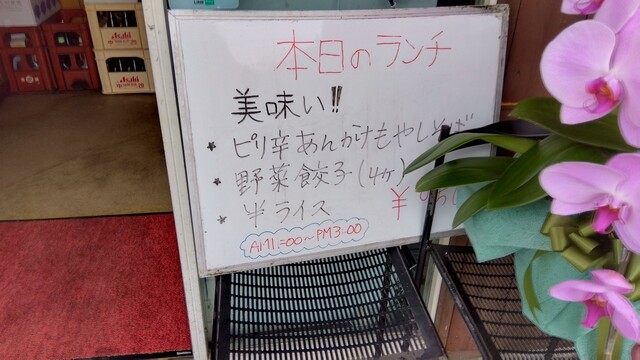 Asahi
Asahi
本日のランチ
美味い!!
* ピリ辛あんかけもやしそば
* 野菜餃子(4ヶ)
* 半ライス
¥
AM11:00〜PM3:00